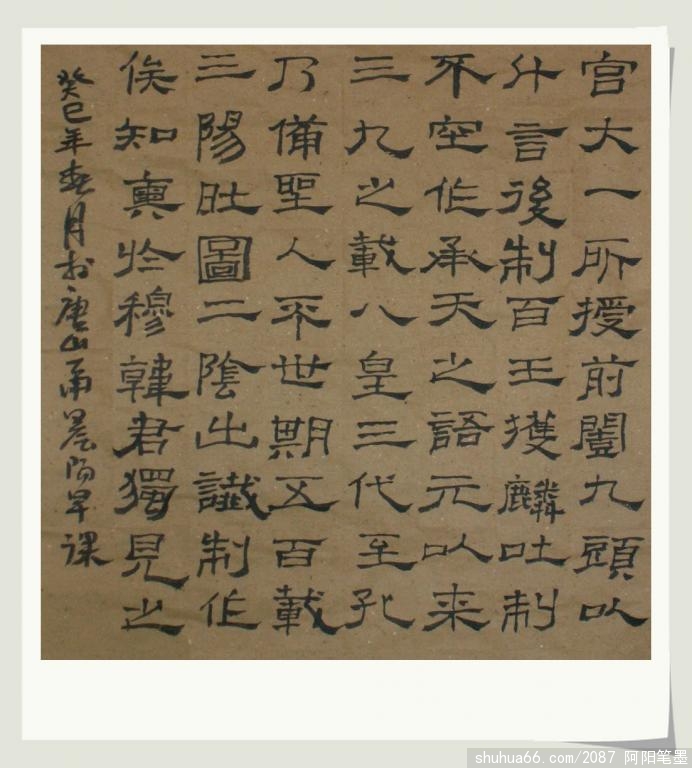 宫大一所授前闓九頭以
什言後制百王獲麟吐制
不空作承天之語元以来
三九之載八皇三代至孔
乃備聖人不世期五百載
三陽吐圖二陰出讖制作
俟知奥於穆韓君獨見之
癸巳年春月於唐山晨阳早课
shuhua66.com/2087 阿阳笔墨